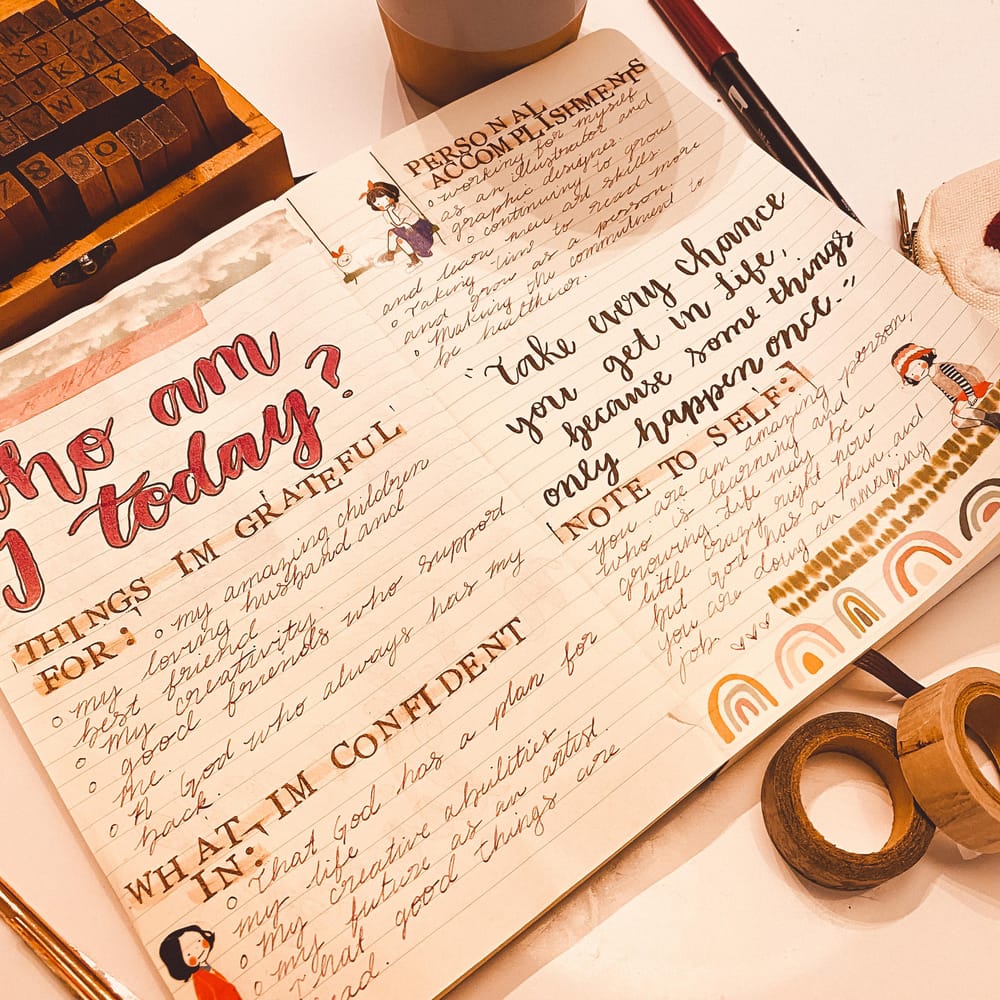 who am
I today?
THINGS IM GRATEFUL
FOR:
o my amazing children
o my loving husband and
best friend
o my creativity.
o good friends who support
me.
o A God who always has my
back.
WHAT IM CONFIDENT
IN:
o That God has a plan for
my life
o my creative abilities
o my future as an artist.
o That good things are
PERSONAL
ACCOMPLISHMENTS
o working for myself
as an illustrator and
graphic designer.
o continuing to grow
and learn new art skills.
o Taking time to read more
and grow as a person.
o Making the commitment to
be healthier.
"Take every chance
you get in life,
because some things
only happen once."
NOTE TO SELF:
you are am amazing person,
who is learning and
growing. Life may be a
little crazy right now
but God has a plan, and
you are doing an amazing
job.
J K M L
W X Y ?
7 8 9 0